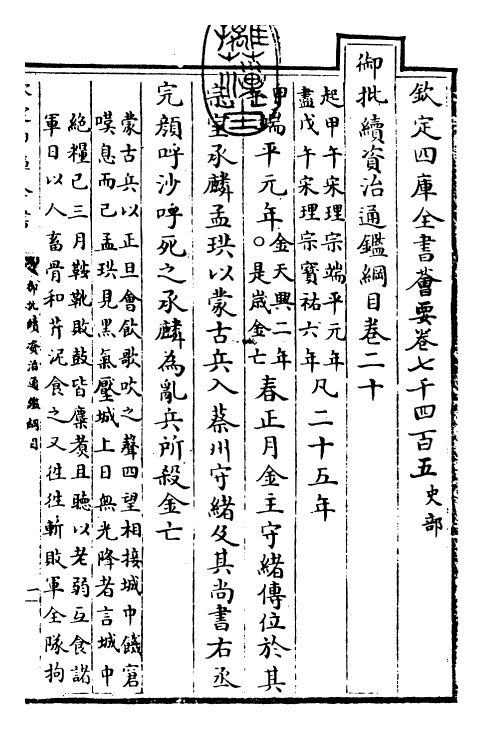 欽定四庫全書薈要卷七千四百五 史部
御批續資治通鑑綱目卷二十
起甲午宋理宗端平元年
盡戊午宋理宗寶祐六年
凡二十五年
甲午
端平元年〇
金天興二年
是歲金亡
春正月金主守緒傳位於其
宗室承麟孟珙以蒙古兵入蔡州守緒及其尚書右丞
完顔呼沙呼死之承麟為亂兵所殺金亡
蒙古兵以正旦會飲歌吹之聲四望相接城中饑窘
嘆息而已孟珙見黑氣壓城上日無光降者言城中
絶糧已三月鞍靴敗鼓皆糜煑且聽以老弱互食諸
軍日以人畜骨和芹泥食之又徃徃斬敗軍全隊拘
御批續資治通鑑綱目
一